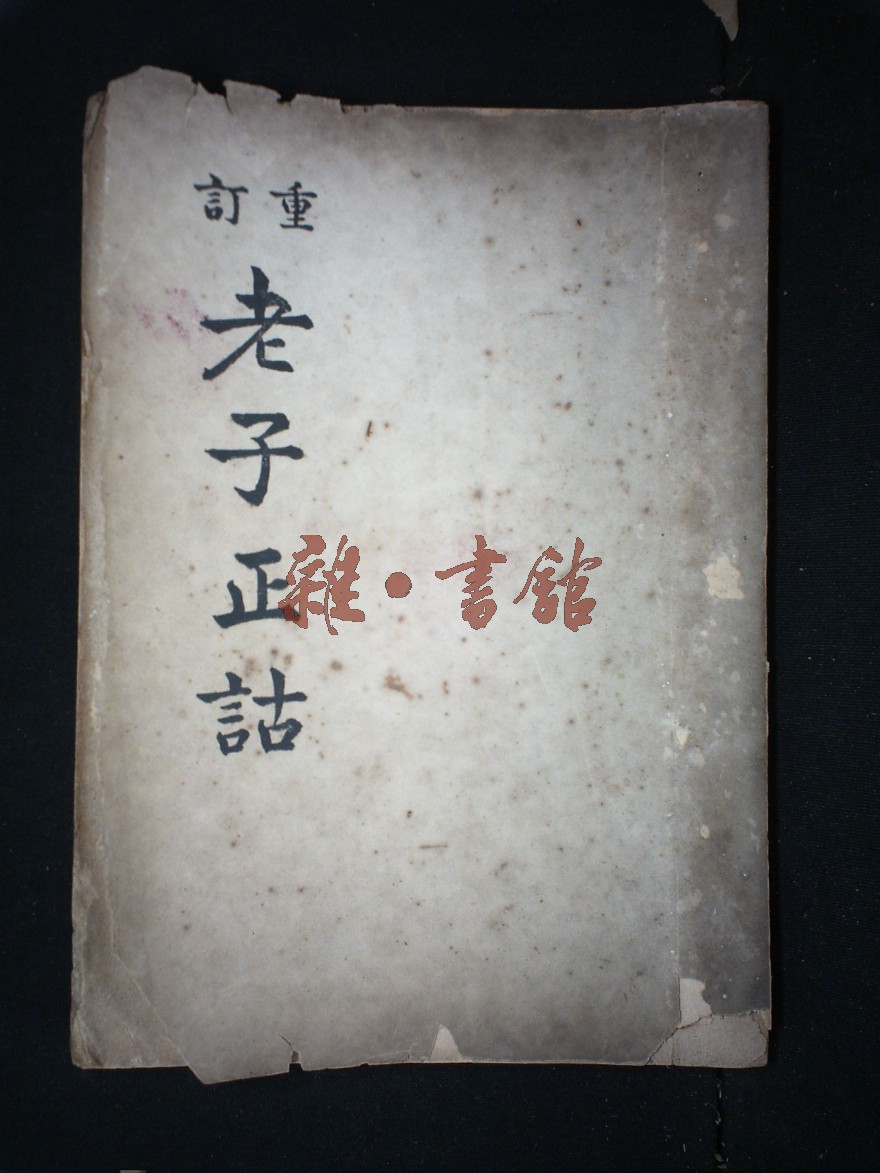 重訂
老子正詁
雜·書館